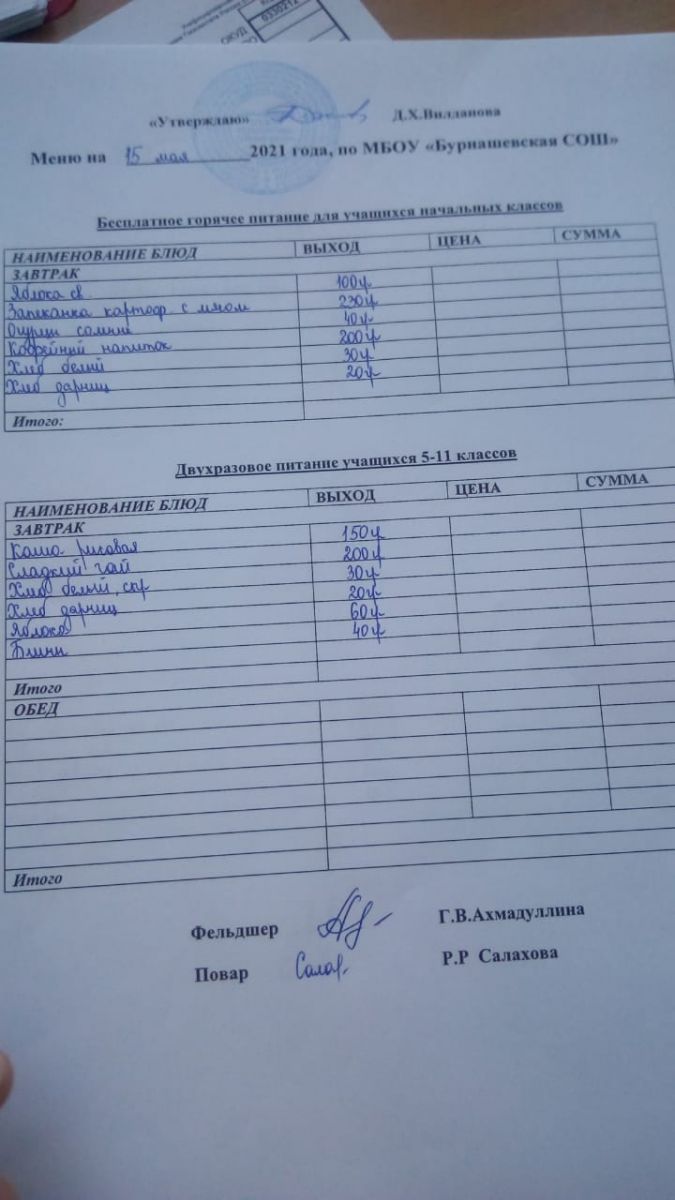 ОКУД
0330212
«Утверждаю» Д.Х.Вилданова
Меню на 15 мая 2021 года, по МБОУ «Бурнашевская СОШ»
Бесплатное горячее питание для учащихся начальных классов
НАИМЕНОВАНИЕ БЛЮД ВЫХОД ЦЕНА СУММА
ЗАВТРАК
Яблока св 100г
Запеканка картоф. с мясом 230г
Огурцы соленые 40г
Кофейный напиток 200г
Хлеб белый 30г
Хлеб дарниц 20г
Итого:
Двухразовое питание учащихся 5-11 классов
НАИМЕНОВАНИЕ БЛЮД ВЫХОД ЦЕНА СУММА
ЗАВТРАК
Каша рисовая 150г
Сладкий чай 200г
Хлеб белый, 30г
Хлеб дарниц 20г
Яблоко 60г
Блины 40г
Итого
ОБЕД
Итого
Фельдшер Г.В.Ахмадуллина
Повар Салах. Р.Р Салахова